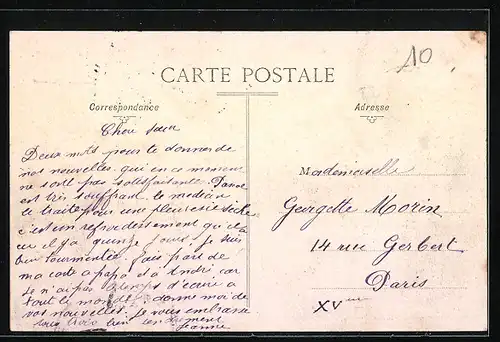 10
CARTE POSTALE
Correspondance
Adresse
Chère sœur
Deux mots pour te donner de
nos nouvelles qui en ce moment
ne sont pas satisfaisante.
est très souffrant le medecin
le traite pour une pleuresie sèche
c'est un refroidissement qu'il a
eu il y a quinze jours. Je suis
bien tourmentée fais part de
ma carte a papa et à André car
je n'ai pas le temps d'écrire a
tout le monde donne moi de
vos nouvelles. Je vous embrasse
tous trois bien tendrement
Jeanne
Mademoiselle
Georgette Morin
14 rue Gerbert
Paris
XV